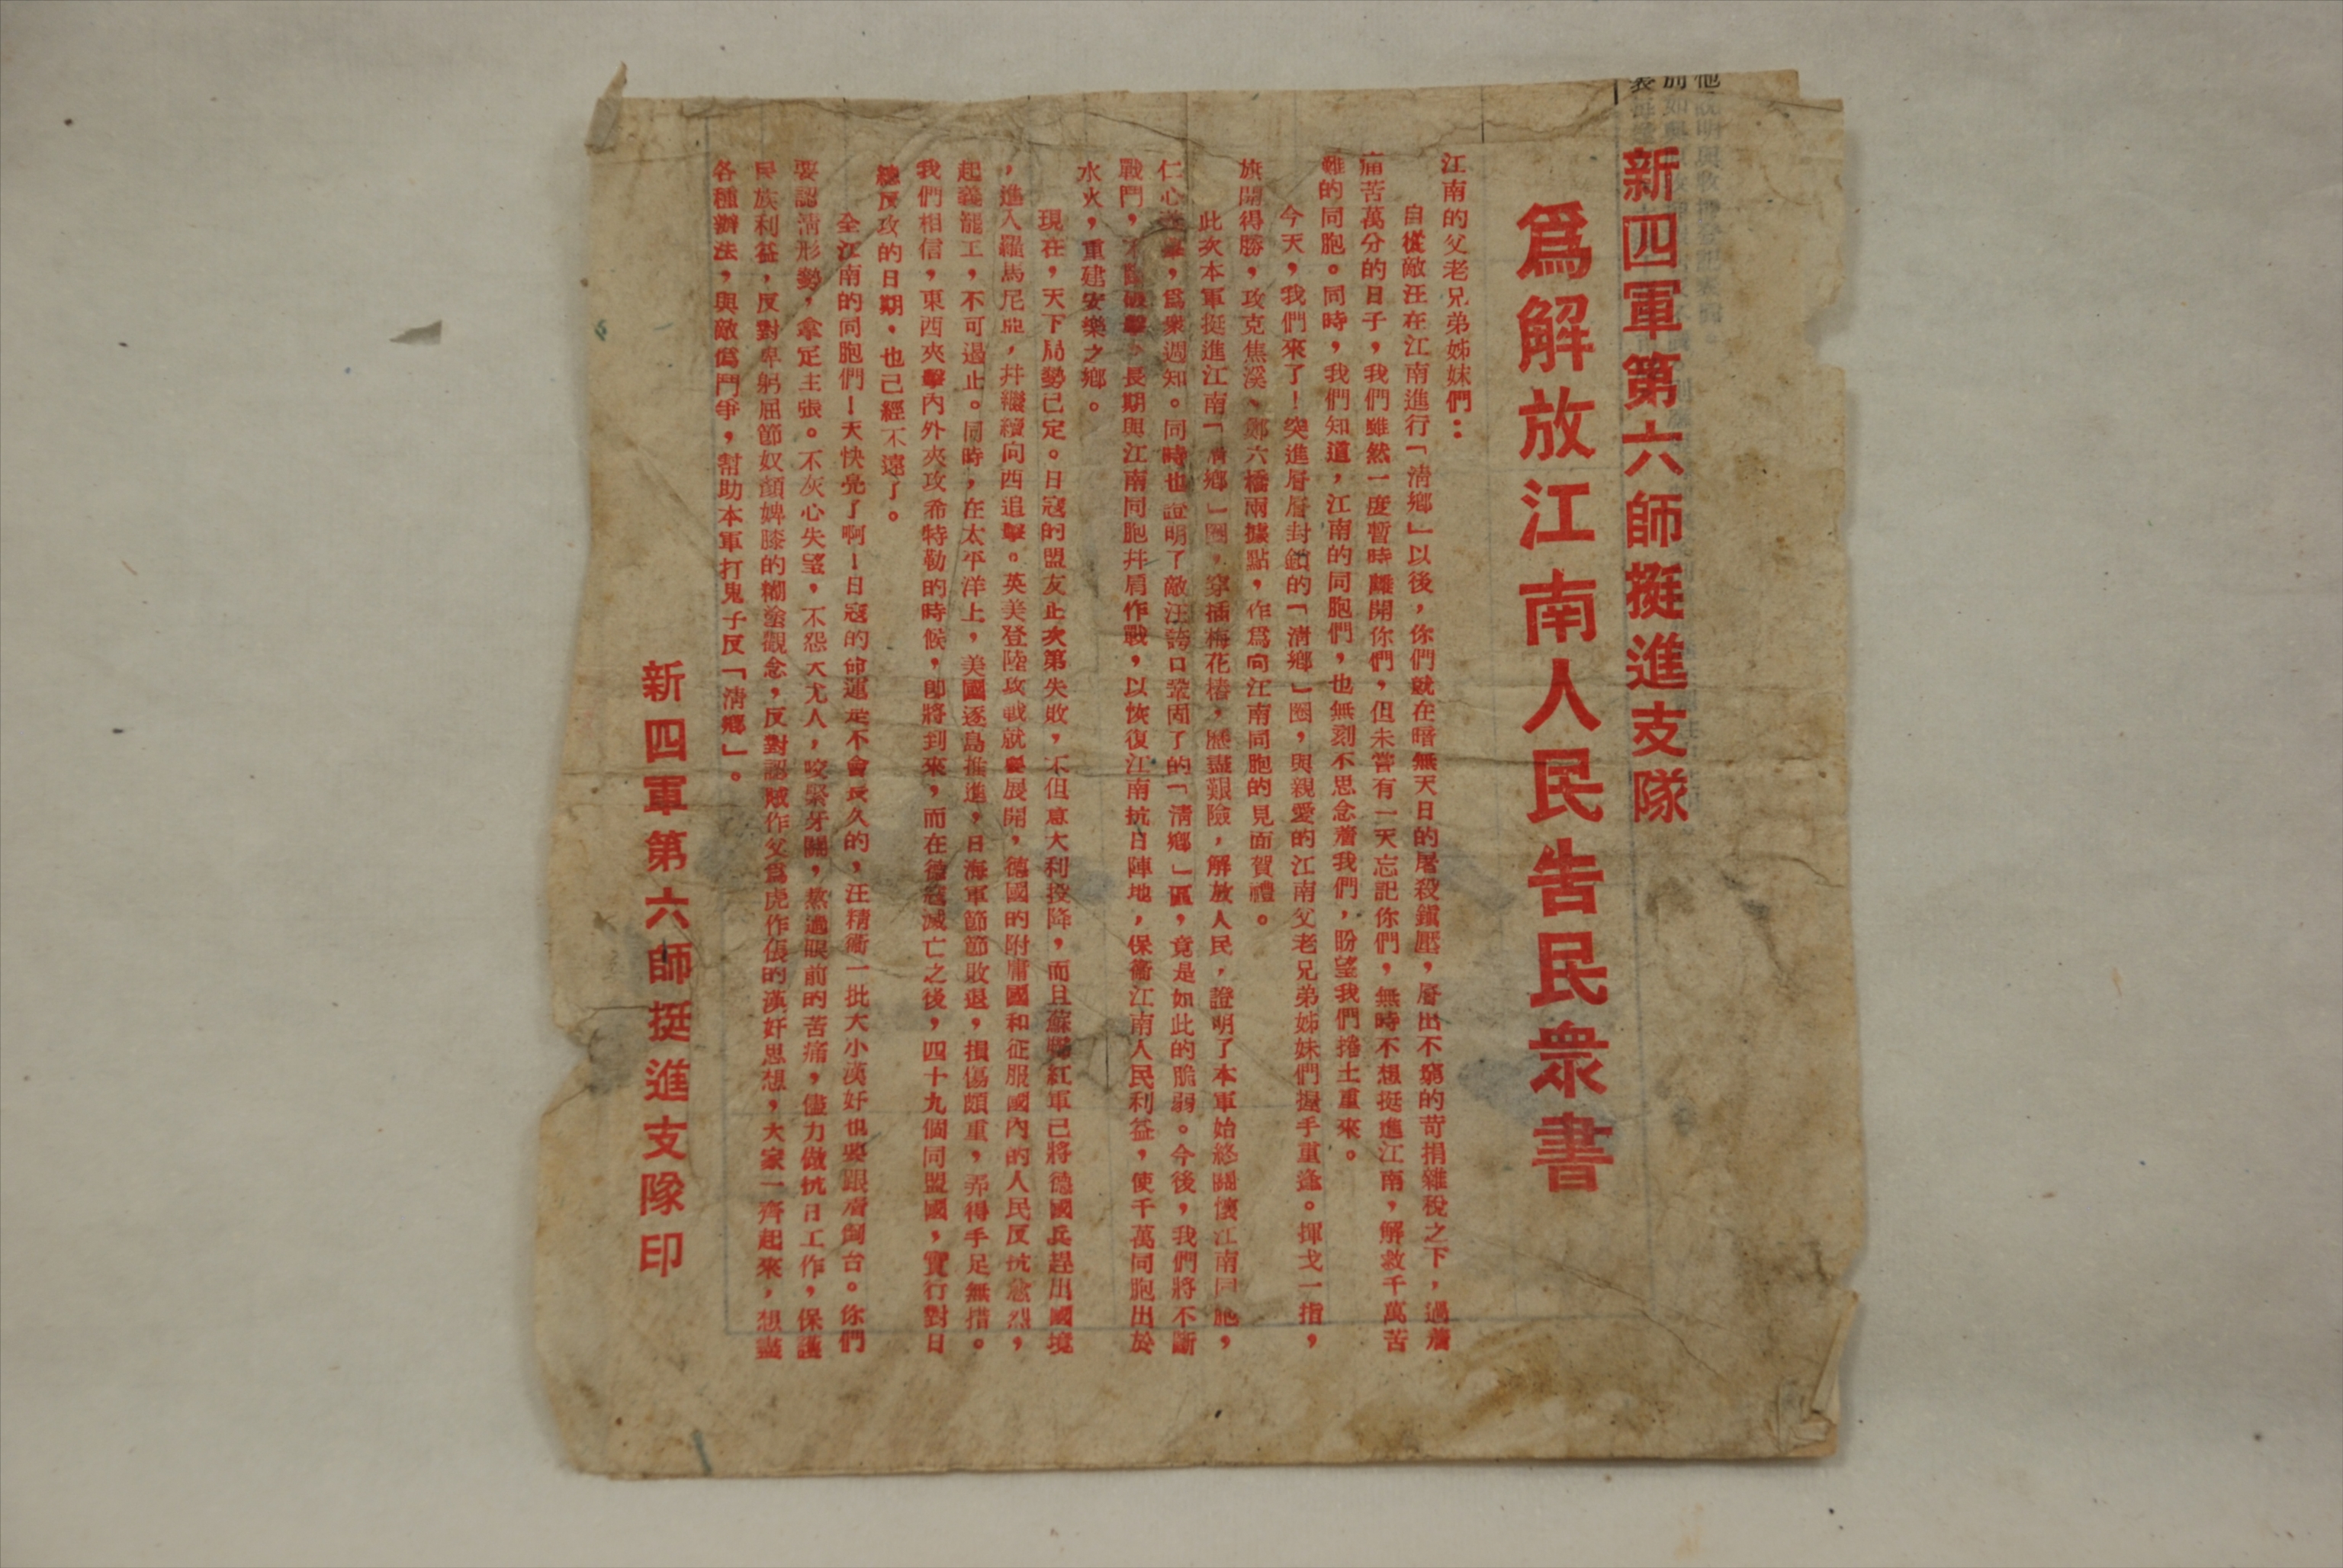 新四軍第六師挺進支隊
爲解放江南人民告民衆書
江南的父老兄弟姊妹們：
自從敵汪在江南進行「清鄉」以後，你們就在暗無天日的屠殺鎮壓，層出不窮的苛捐雜稅之下，過着
痛苦萬分的日子，我們雖然一度暫時離開你們，但未嘗有一天忘記你們，無時不想挺進江南，解救千萬苦
難的同胞。同時，我們知道，江南的同胞們，也無刻不思念着我們，盼望我們捲土重來。
今天，我們來了！突進層層封鎖的「清鄉」圈，與親愛的江南父老兄弟姊妹們握手重逢。揮戈一指，
旗開得勝，攻克焦溪、鄭六橋兩據點，作爲向江南同胞的見面賀禮。
此次本軍挺進江南「清鄉」圈，穿插梅花樁，歷盡艱險，解放人民，證明了本軍始終關懷江南同胞，
仁心義舉，爲衆週知。同時也證明了敵汪誇口鞏固了的「清鄉」區，竟是如此的脆弱。今後，我們將不斷
戰鬥，不斷襲擊，長期與江南同胞幷肩作戰，以恢復江南抗日陣地，保衞江南人民利益，使千萬同胞出於
水火，重建安樂之鄉。
現在，天下局勢已定。日寇的盟友正次第失敗，不但意大利投降，而且蘇聯紅軍已將德國兵趕出國境
，進入羅馬尼亞，幷繼續向西追擊。英美登陸攻戰就要展開，德國的附庸國和征服國內的人民反抗愈烈，
起義罷工，不可遏止。同時，在太平洋上，美國逐島推進，日海軍節節敗退，損傷頗重，弄得手足無措。
我們相信，東西夾擊內外夾攻希特勒的時候，卽將到來，而在德寇滅亡之後，四十九個同盟國，實行對日
總反攻的日期，也已經不遠了。
全江南的同胞們！天快亮了啊！日寇的命運是不會長久的，汪精衞一批大小漢奸也要跟着倒台。你們
要認清形勢，拿定主張。不灰心失望，不怨天尤人，咬緊牙關，熬過眼前的苦痛，儘力做抗日工作，保護
民族利益，反對卑躬屈節奴顏婢膝的糊塗觀念，反對認賊作父爲虎作倀的漢奸思想，大家一齊起來，想盡
各種辦法，與敵僞鬥爭，幫助本軍打鬼子反「清鄉」。
新四軍第六師挺進支隊印